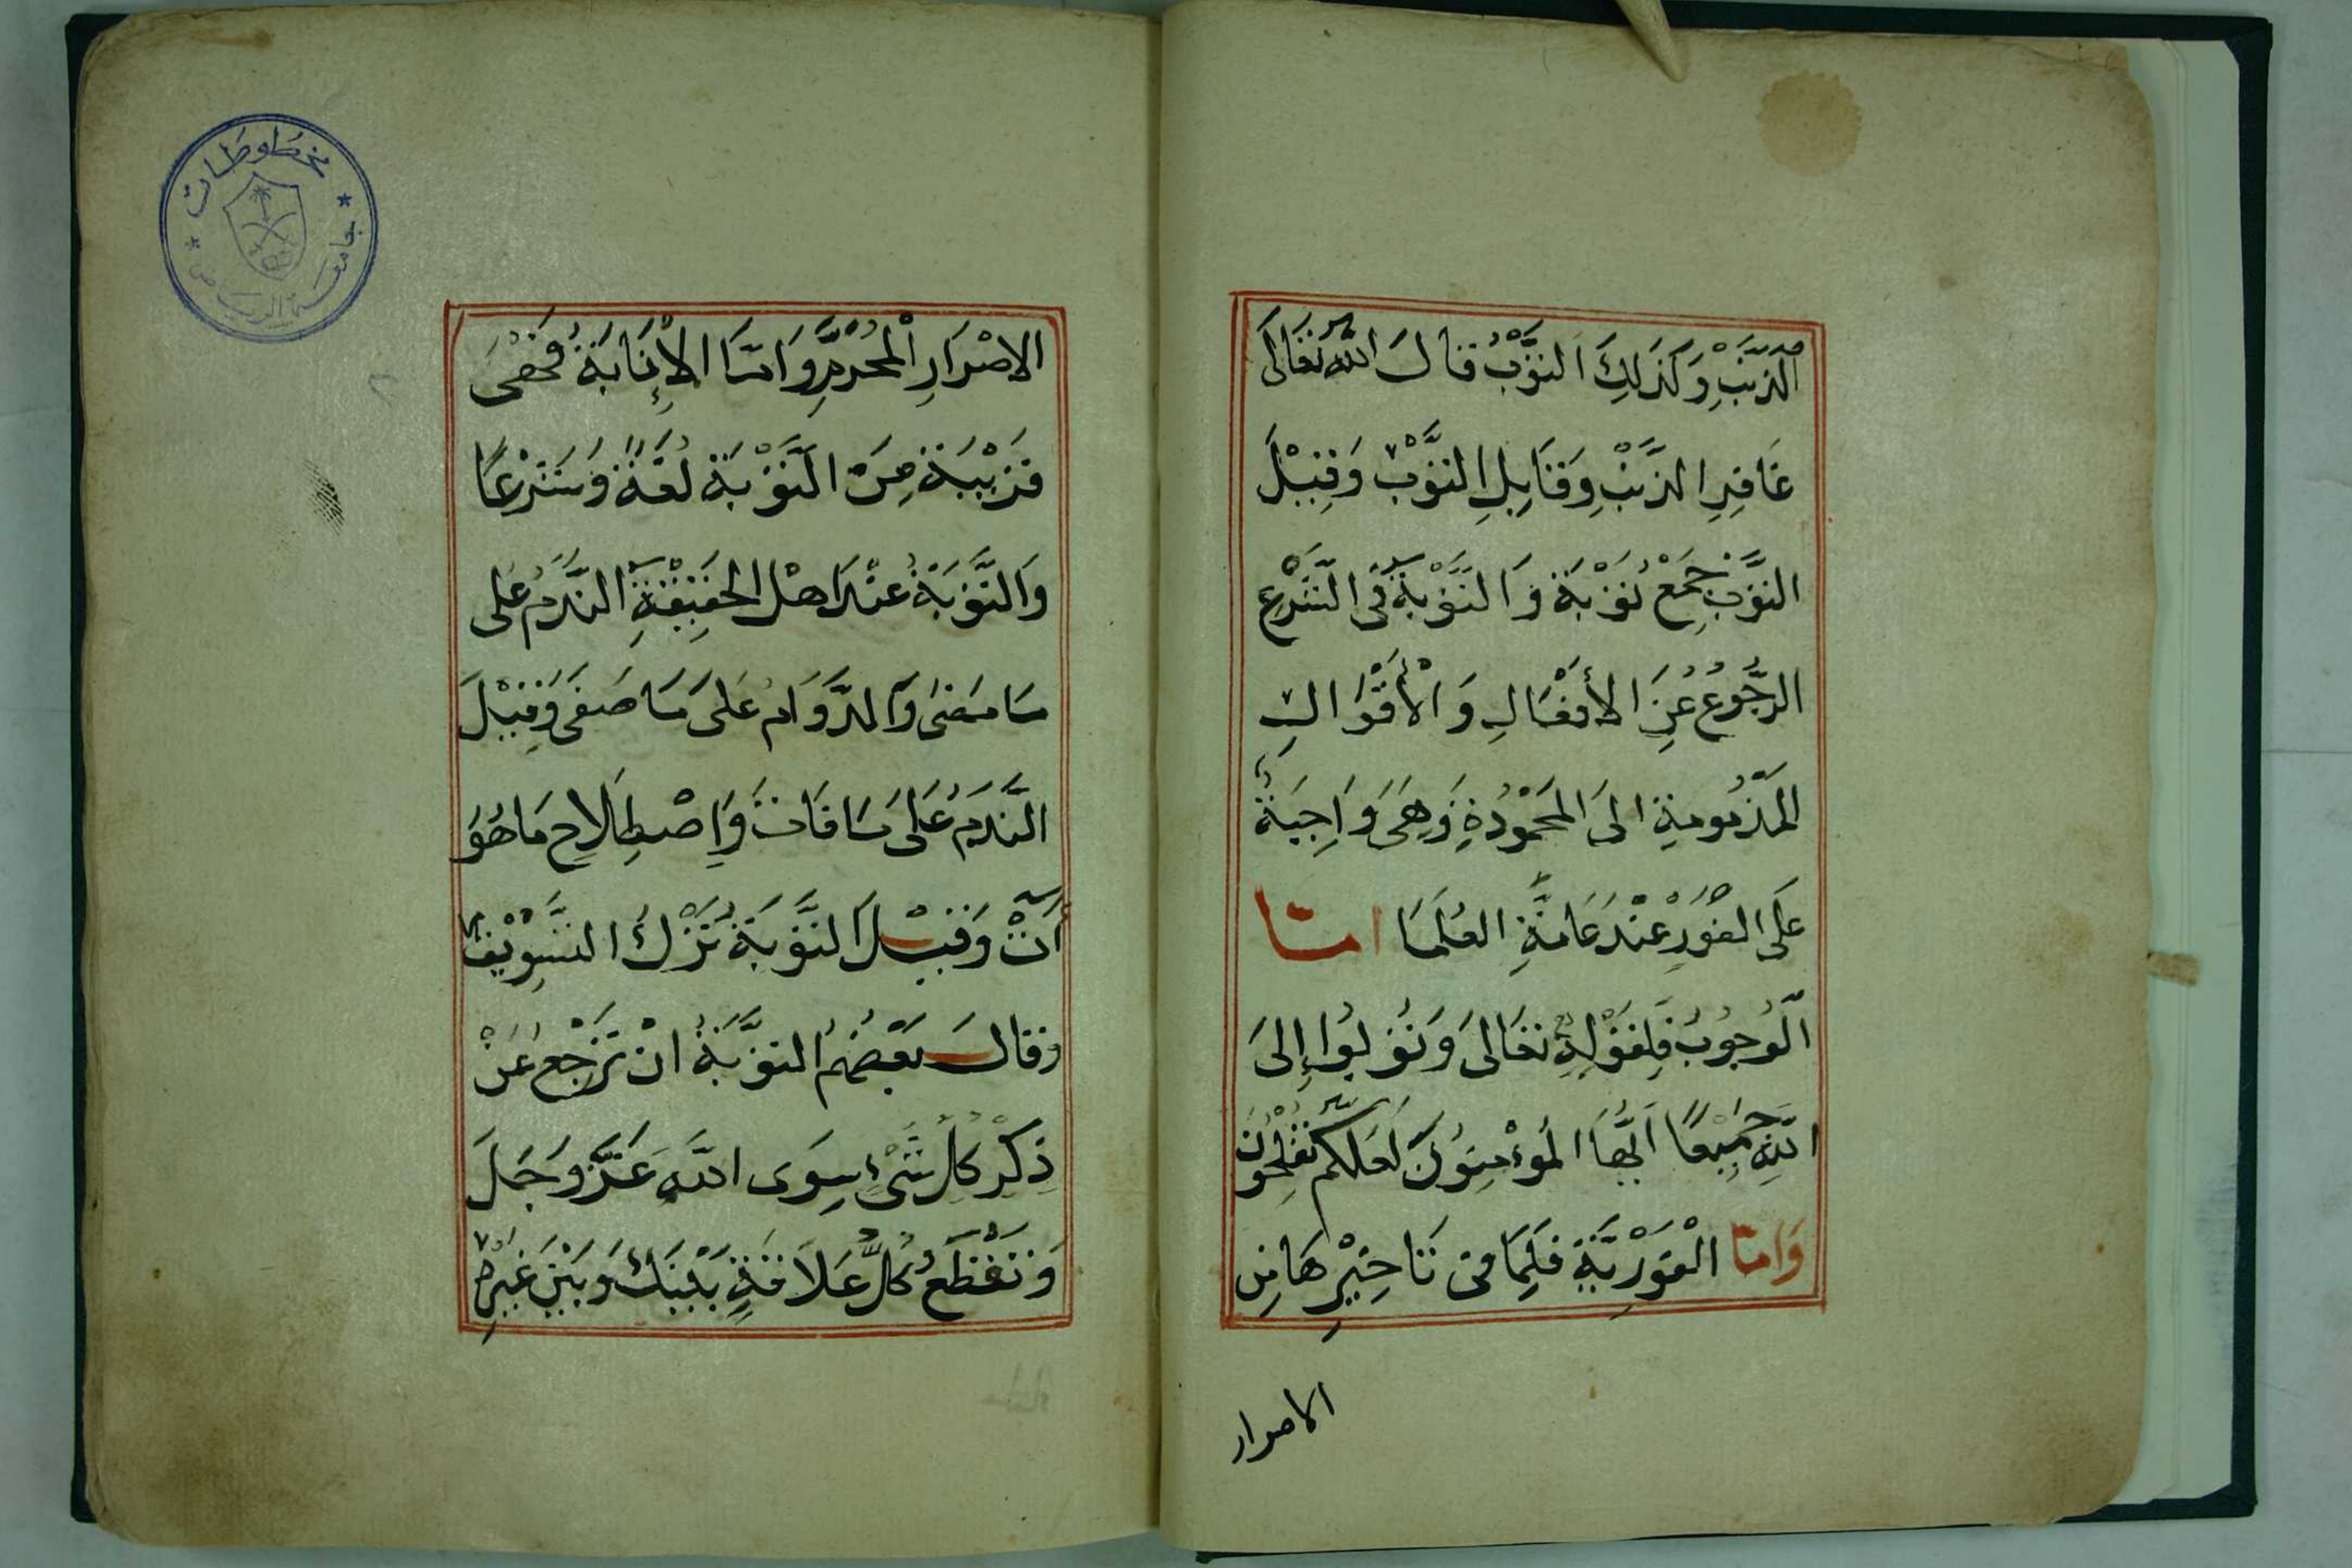 الذَّنْبِ وَكَذَلِكَ التَّوْبُ قَالَ اللهُ تَعَالَى
غَافِرِ الذَّنْبِ وَقَابِلِ التَّوْبِ وَقِيْلَ
التَّوْبُ جَمْعُ تَوْبَةٍ وَالتَّوْبَةُ فِي الشَّرْعِ
الرُّجُوعُ عَنِ الأَفْعَالِ وَالْأَقْوَالِ
المَذْمُومَةِ الَى المَحْمُوْدَةِ وَهِيَ وَاجِبَةٌ
عَلَى الفَوْرِ عِنْدَ عَامَّةِ العُلَمَا امَّا
الْوُجُوْبُ فَلِقَوْلِهِ تَعَالَى وَتُوْبُوا إِلَى
اللهِ جَمِيْعًا اَيُّهَا المُؤْمِنُوْنَ لَعَلَّكُمْ تُفْلِحُوْنَ
وَامَّا الْفَوْرِيَّةُ فَلِمَا فِى تَاخِيْرِهَا مِنَ
الاصرار
مخطوطات
جامعة الرياض
الاِصْرَارِ الْمُحَرَّمِ وَامَّا الْإِنَابَةُ فَهْىَ
قَرِيْبَةٌ مِنَ التَّوْبَةِ لُغَةً وَشَرْعًا
وَالتَّوْبَةُ عِنْدَ اهْلِ الحَقِيْقَةِ النَّدَمُ عَلَى
مَا مَضَى وَالدَّوَامُ عَلَى مَا صَفَى وَقِيْلَ
النَّدَمُ عَلَى مَا فَاتَ وَإِصْطِلَاحِ مَا هُوَ
آتٍ وَقِيْلَ التَّوْبَةُ تَرْكُ التَّسْوِيْفِ
وَقَالَ بَعْضُهُمُ التَّوْبَةُ انْ تَرْجِعَ عَنْ
ذِكْرِ كُلِّ شَيْءٍ سِوَى اللهِ عَزَّ وَجَلَّ
وَتَقْطَعُ كُلَّ عَلَاقَةٍ بَيْنَكَ وَبَيْنَ غَيْرِهِ